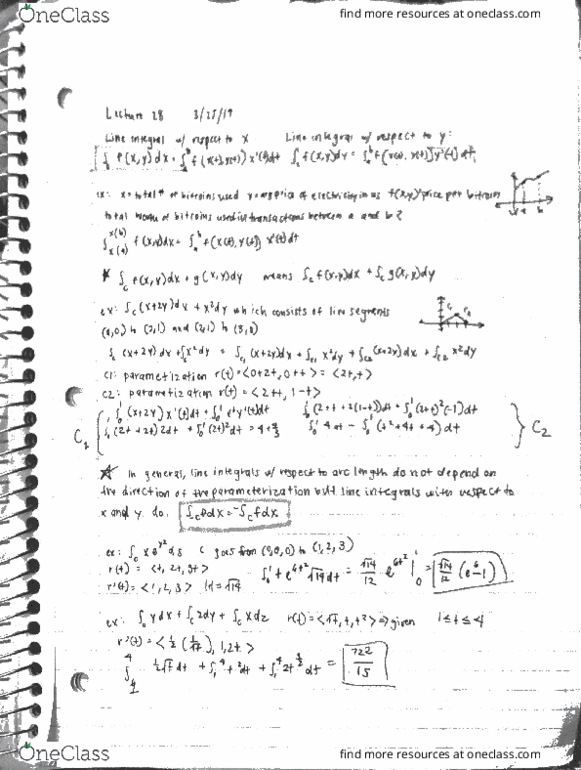 OneClass
find more resources at oneclass.com
Lecture 28 3/25/19
Line integral w/ respect to x Line integral w/ respect to y:
∫c f(x,y)dx = ∫ₐᵇ f(x(t),y(t)) x'(t)dt ∫c f(x,y)dy = ∫ₐᵇ f(x(t), y(t)) y'(t) dt
ex: x = total # of bitcoins used y = avg price of electricity in US f(x,y) = price per bitcoin
total worth of bitcoins used in transactions between a and b?
∫x(a)x(b) f(x,y)dx = ∫ₐᵇ f(x(t), y(t)) x'(t)dt
* ∫c f(x,y)dx + g(x,y)dy means ∫c f(x,y)dx + ∫c g(x,y)dy
ex: ∫c (x+2y)dx + x²dy which consists of line segments
(0,0) to (2,1) and (2,1) to (3,0)
∫c (x+2y)dx + ∫c x²dy = ∫c₁ (x+2y)dx + ∫c₁ x²dy + ∫c₂ (x+2y)dx + ∫c₂ x²dy
C1: parametization r(t) = <0+2t, 0+t> = <2t,t>
C2: parametization r(t) = <2+t, 1-t>
∫₀¹ (x+2y) x'(t)dt ∫₀¹ (2+t+2(1-t))dt + ∫₀¹ (2+t)²(-1)dt
C₁ ∫₀¹ (2t+2t)2dt + ∫₀¹ (2t)²dt ∫₀¹ 4-t dt - ∫₀¹ (t²+4t+4)dt C₂
☆ In general, line integrals w/ respect to arc length do not depend on
the direction of the parameterization but line integrals with respect to
x and y do. ∫c fdx = -∫c fdx
ds C goes from (0,0,0) to (1,2,3)
r(t) = <t, 2t, 3t> ∫₀¹ te^6t² √14 dt = √14/12 e^6t² |₀¹ = √14/12 (e⁶-1)
r'(t) = <1,2,3> = √14
ex: ydx + ∫c zdy + ∫c xdz r(t) = <√t, t, t²> => given 1≤t≤4
r'(t) = <½(1/√t), 1, 2t>
½√t dt + ∫₁⁴ t²dt + ∫₁⁴ 2t^3/2 dt = 722/15
OneClass
find more resources at oneclass.com